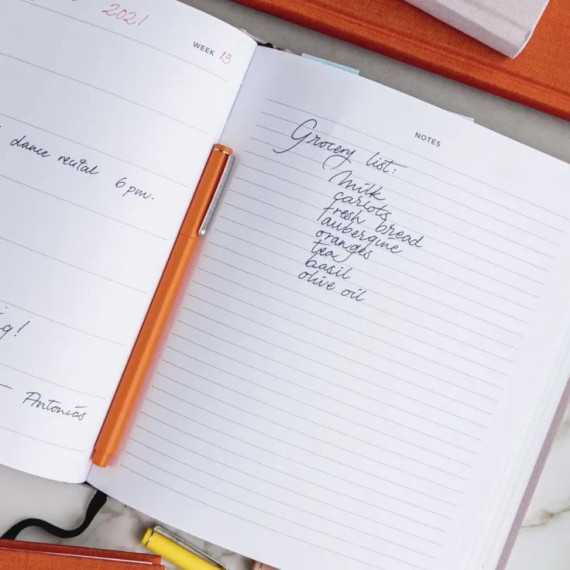 2021
WEEK 15
dance recital 6 pm.
Antonios
NOTES
Grocery list:
milk
carrots
fresh bread
aubergine
oranges
tea
basil
olive oil